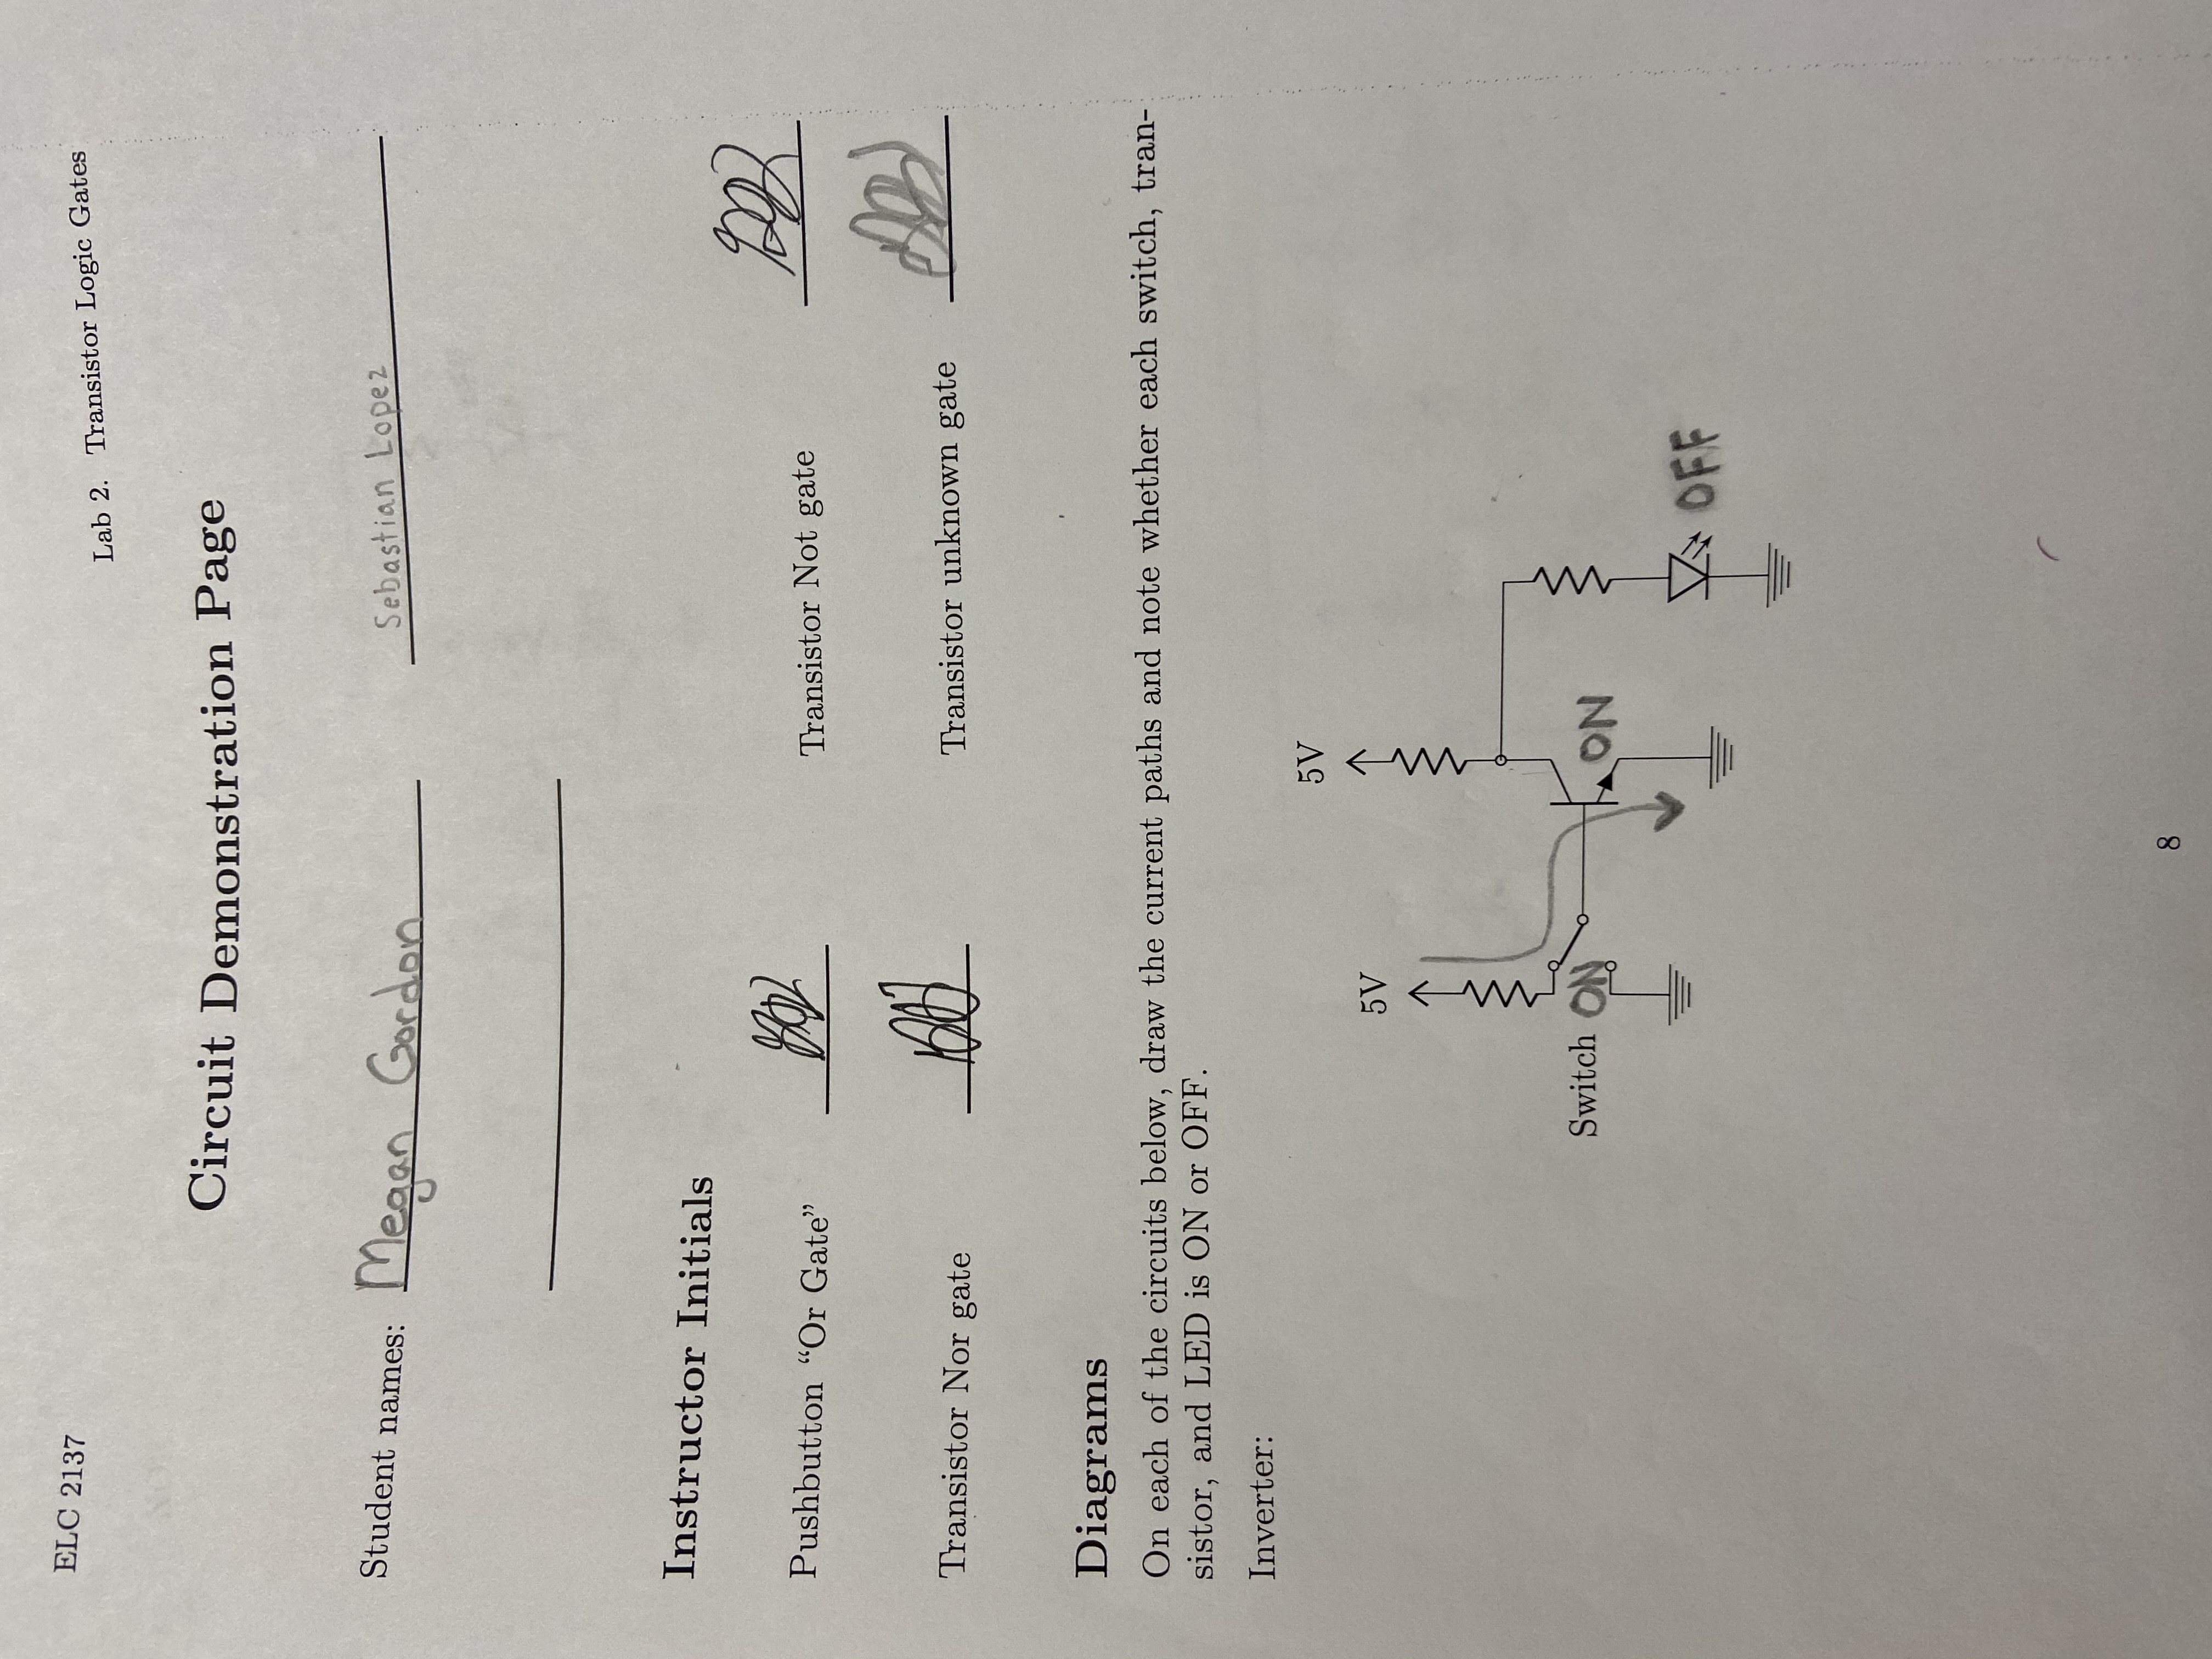 ELC 2137
Lab 2. Transistor Logic Gates
Circuit Demonstration Page
Student names: Megan Gordon Sebastian Lopez
Instructor Initials
Pushbutton “Or Gate” Transistor Not gate
Transistor Nor gate Transistor unknown gate
Diagrams
On each of the circuits below, draw the current paths and note whether each switch, tran-
sistor, and LED is ON or OFF.
Inverter:
5V
5V
Switch ON ON
OFF
8